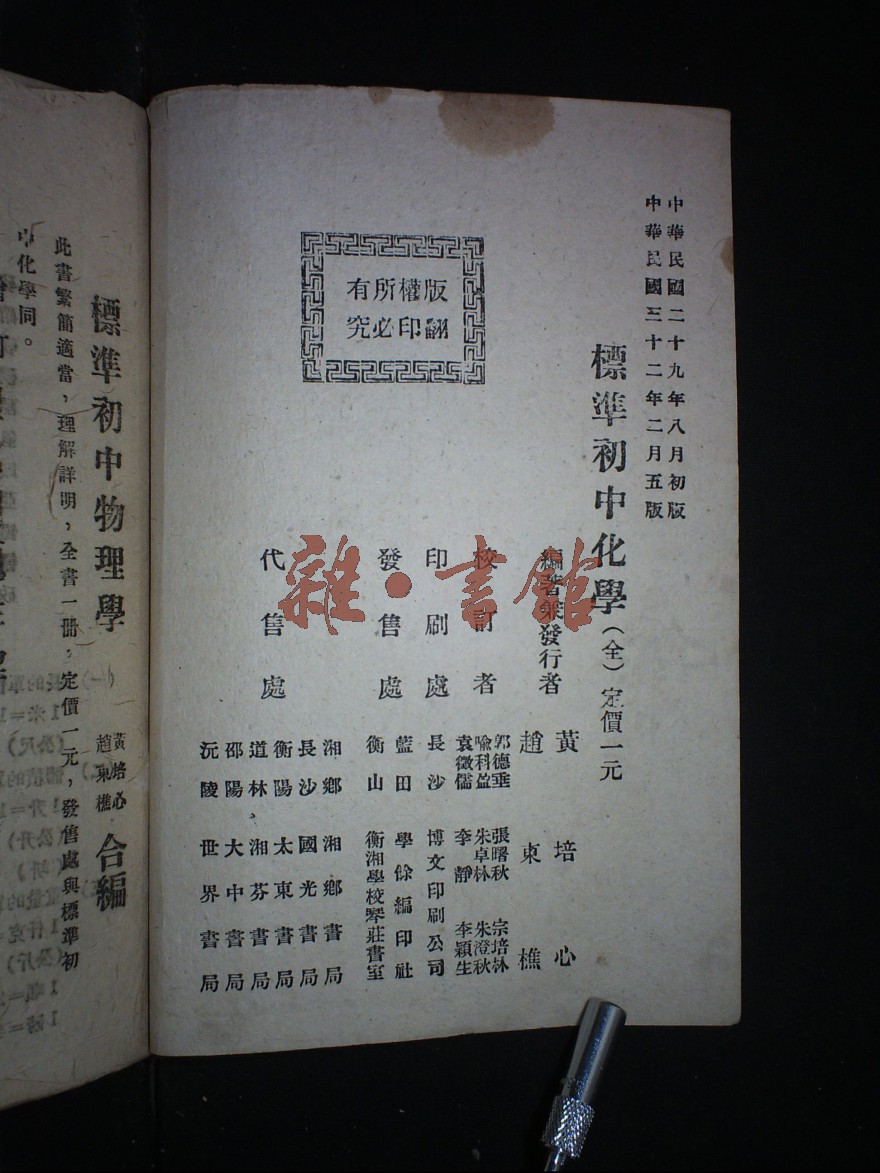 中華民國二十九年八月初版
中華民國三十二年二月五版
標準初中化學(全)定價一元
編著兼發行者 黃培心 趙東樵
校訂者 郭德垂 張曙秋 宗培林
喻科盈 朱卓林 朱澄秋
袁徵儒 李靜 李穎生
印刷處 長沙 博文印刷公司
發售處 藍田 學餘編印社
衡山 衡湘學校琴莊書室
代售處 湘鄉 湘鄉書局
長沙 國光書局
衡陽 太東書局
道林 湘芬書局
邵陽 大中書局
沅陵 世界書局
版權所有
翻印必究
雜·書館
標準初中物理學 黃培心 趙東樵 合編
此書繁簡適當,理解詳明,全書一册,定價一元,發售處與標準初
中化學同。